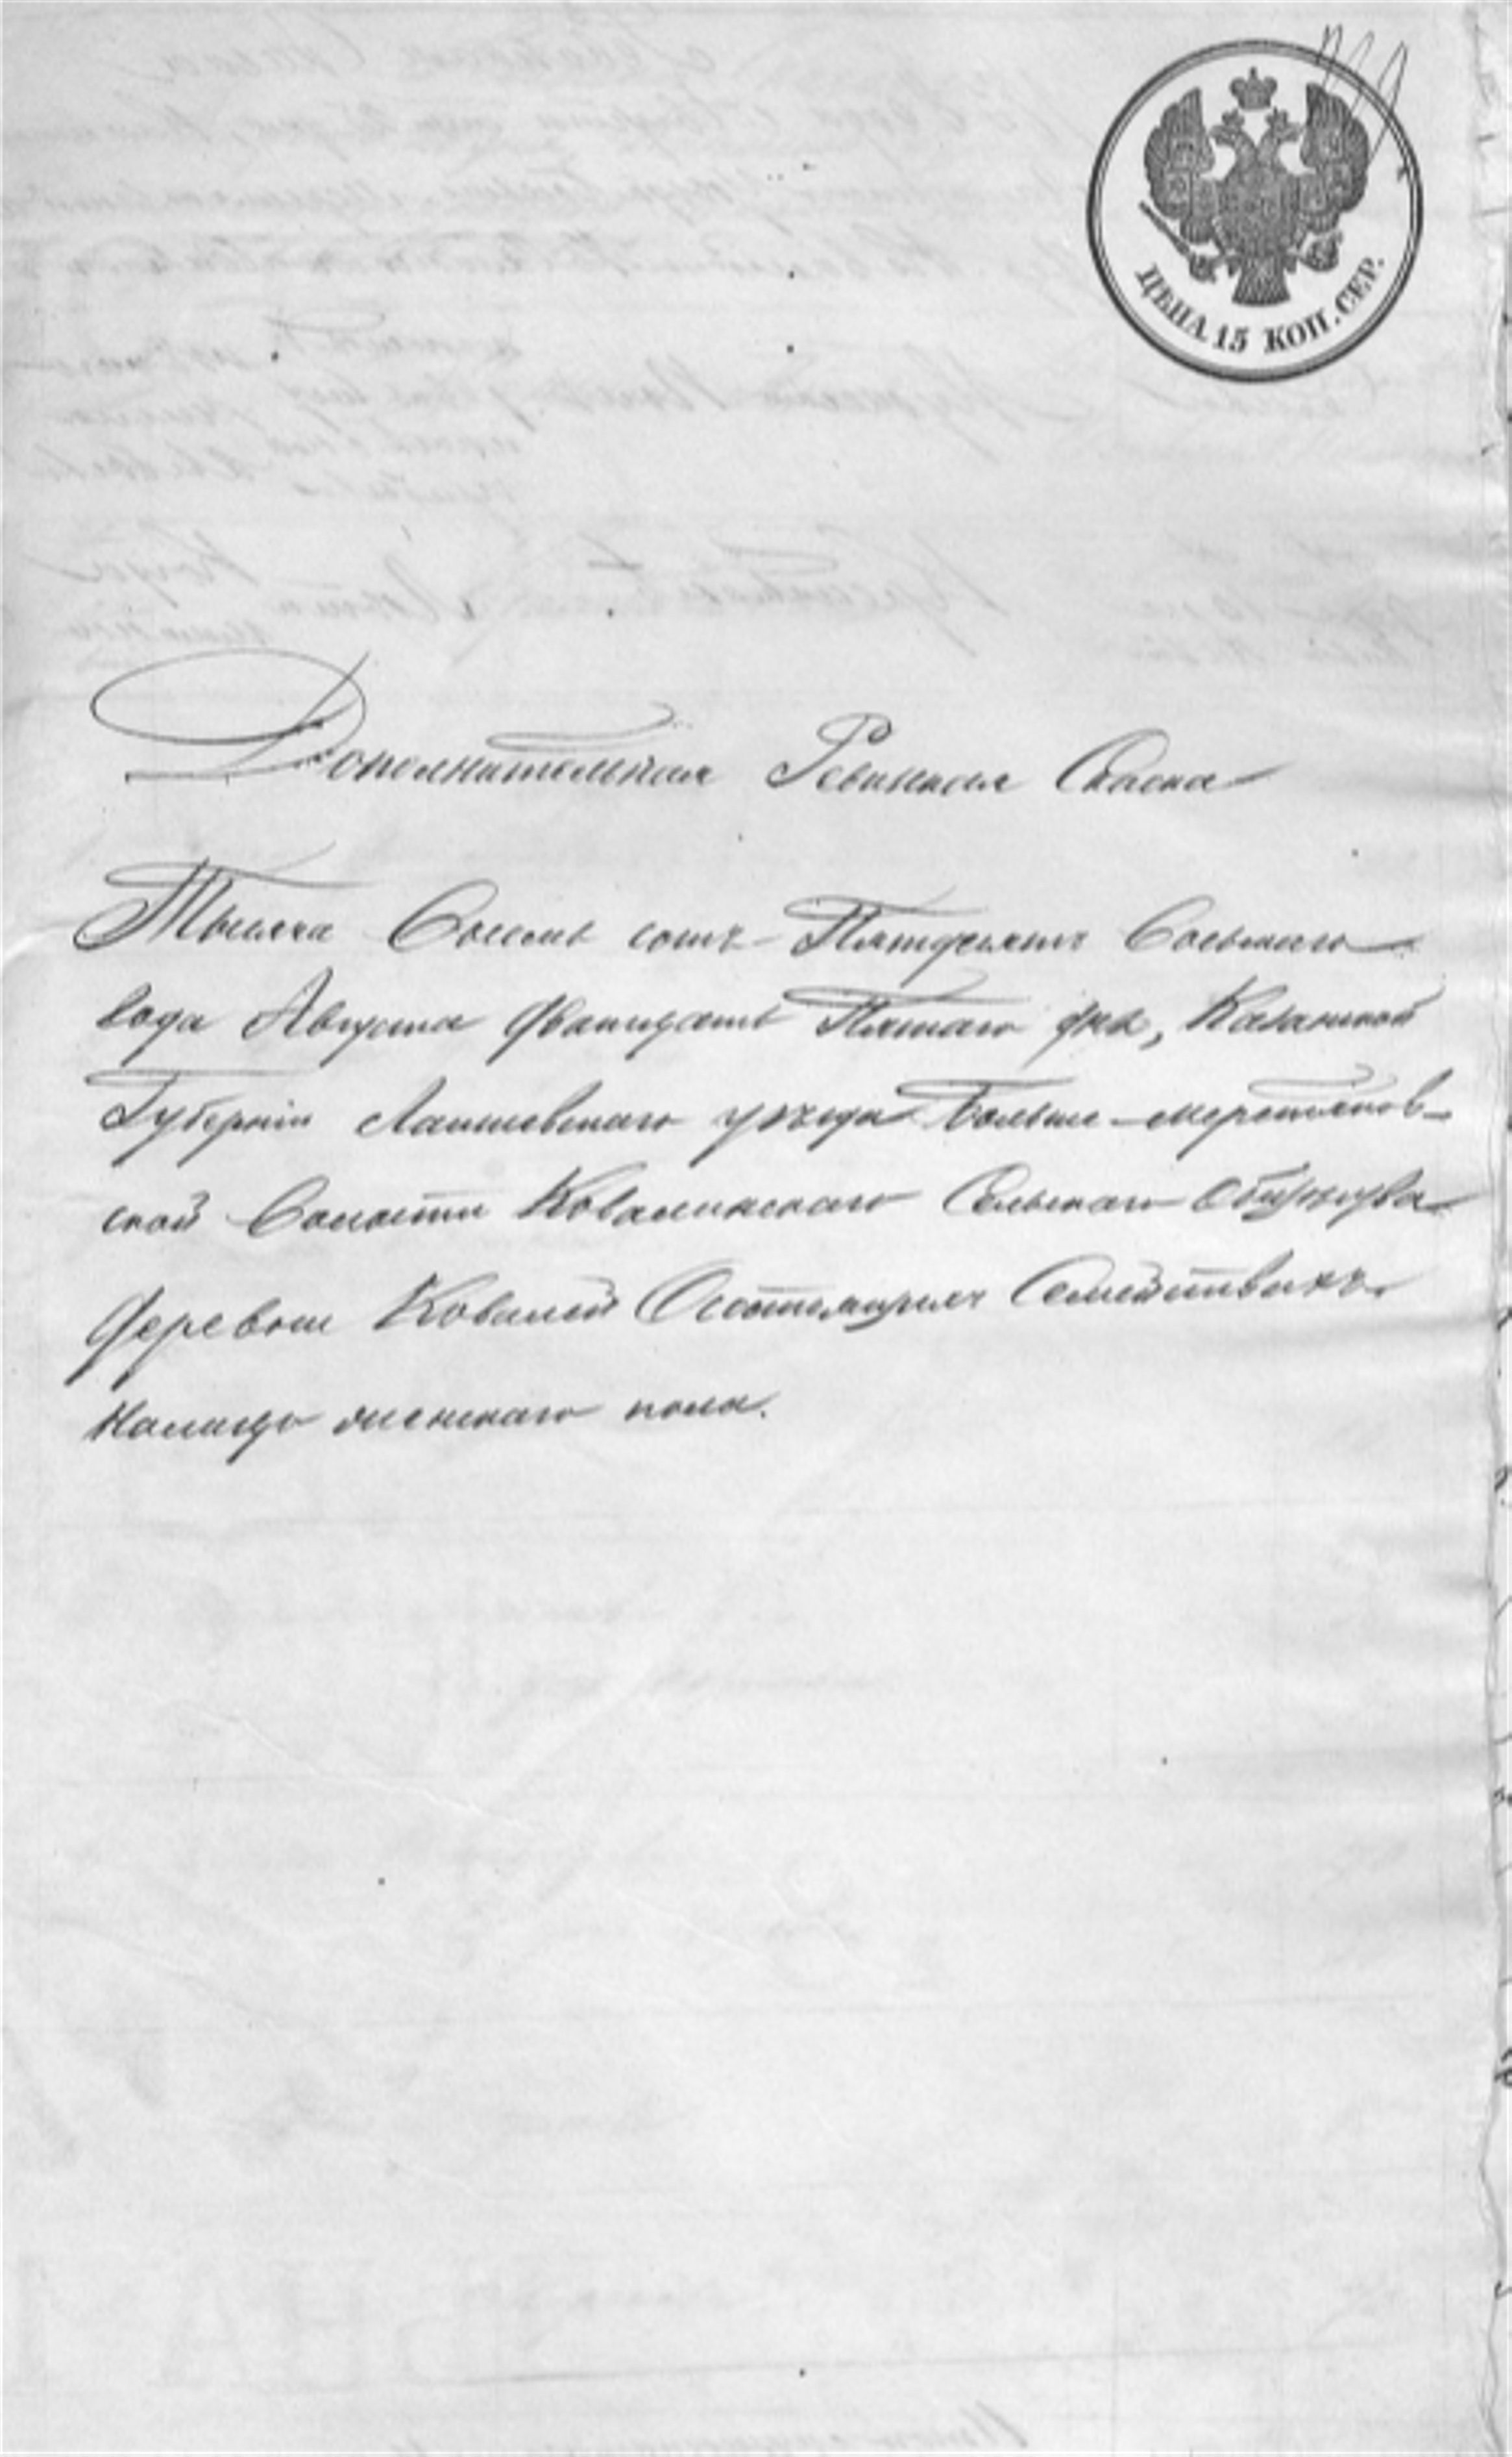 ЦѢНА 15 КОП. СЕР.
Дополнительная Ревизкая Скаска
Тысяча Восемь сотъ Пятдесятъ Восьмаго
года Августа двадцать Пятаго дня, Казанской
Губернiи Лаишевскаго уѣзда Больше-меретяков-
ской Волости Ковалинскаго Сельскаго Общества
деревни Ковалей О Семействахъ
Налицо женскаго пола.